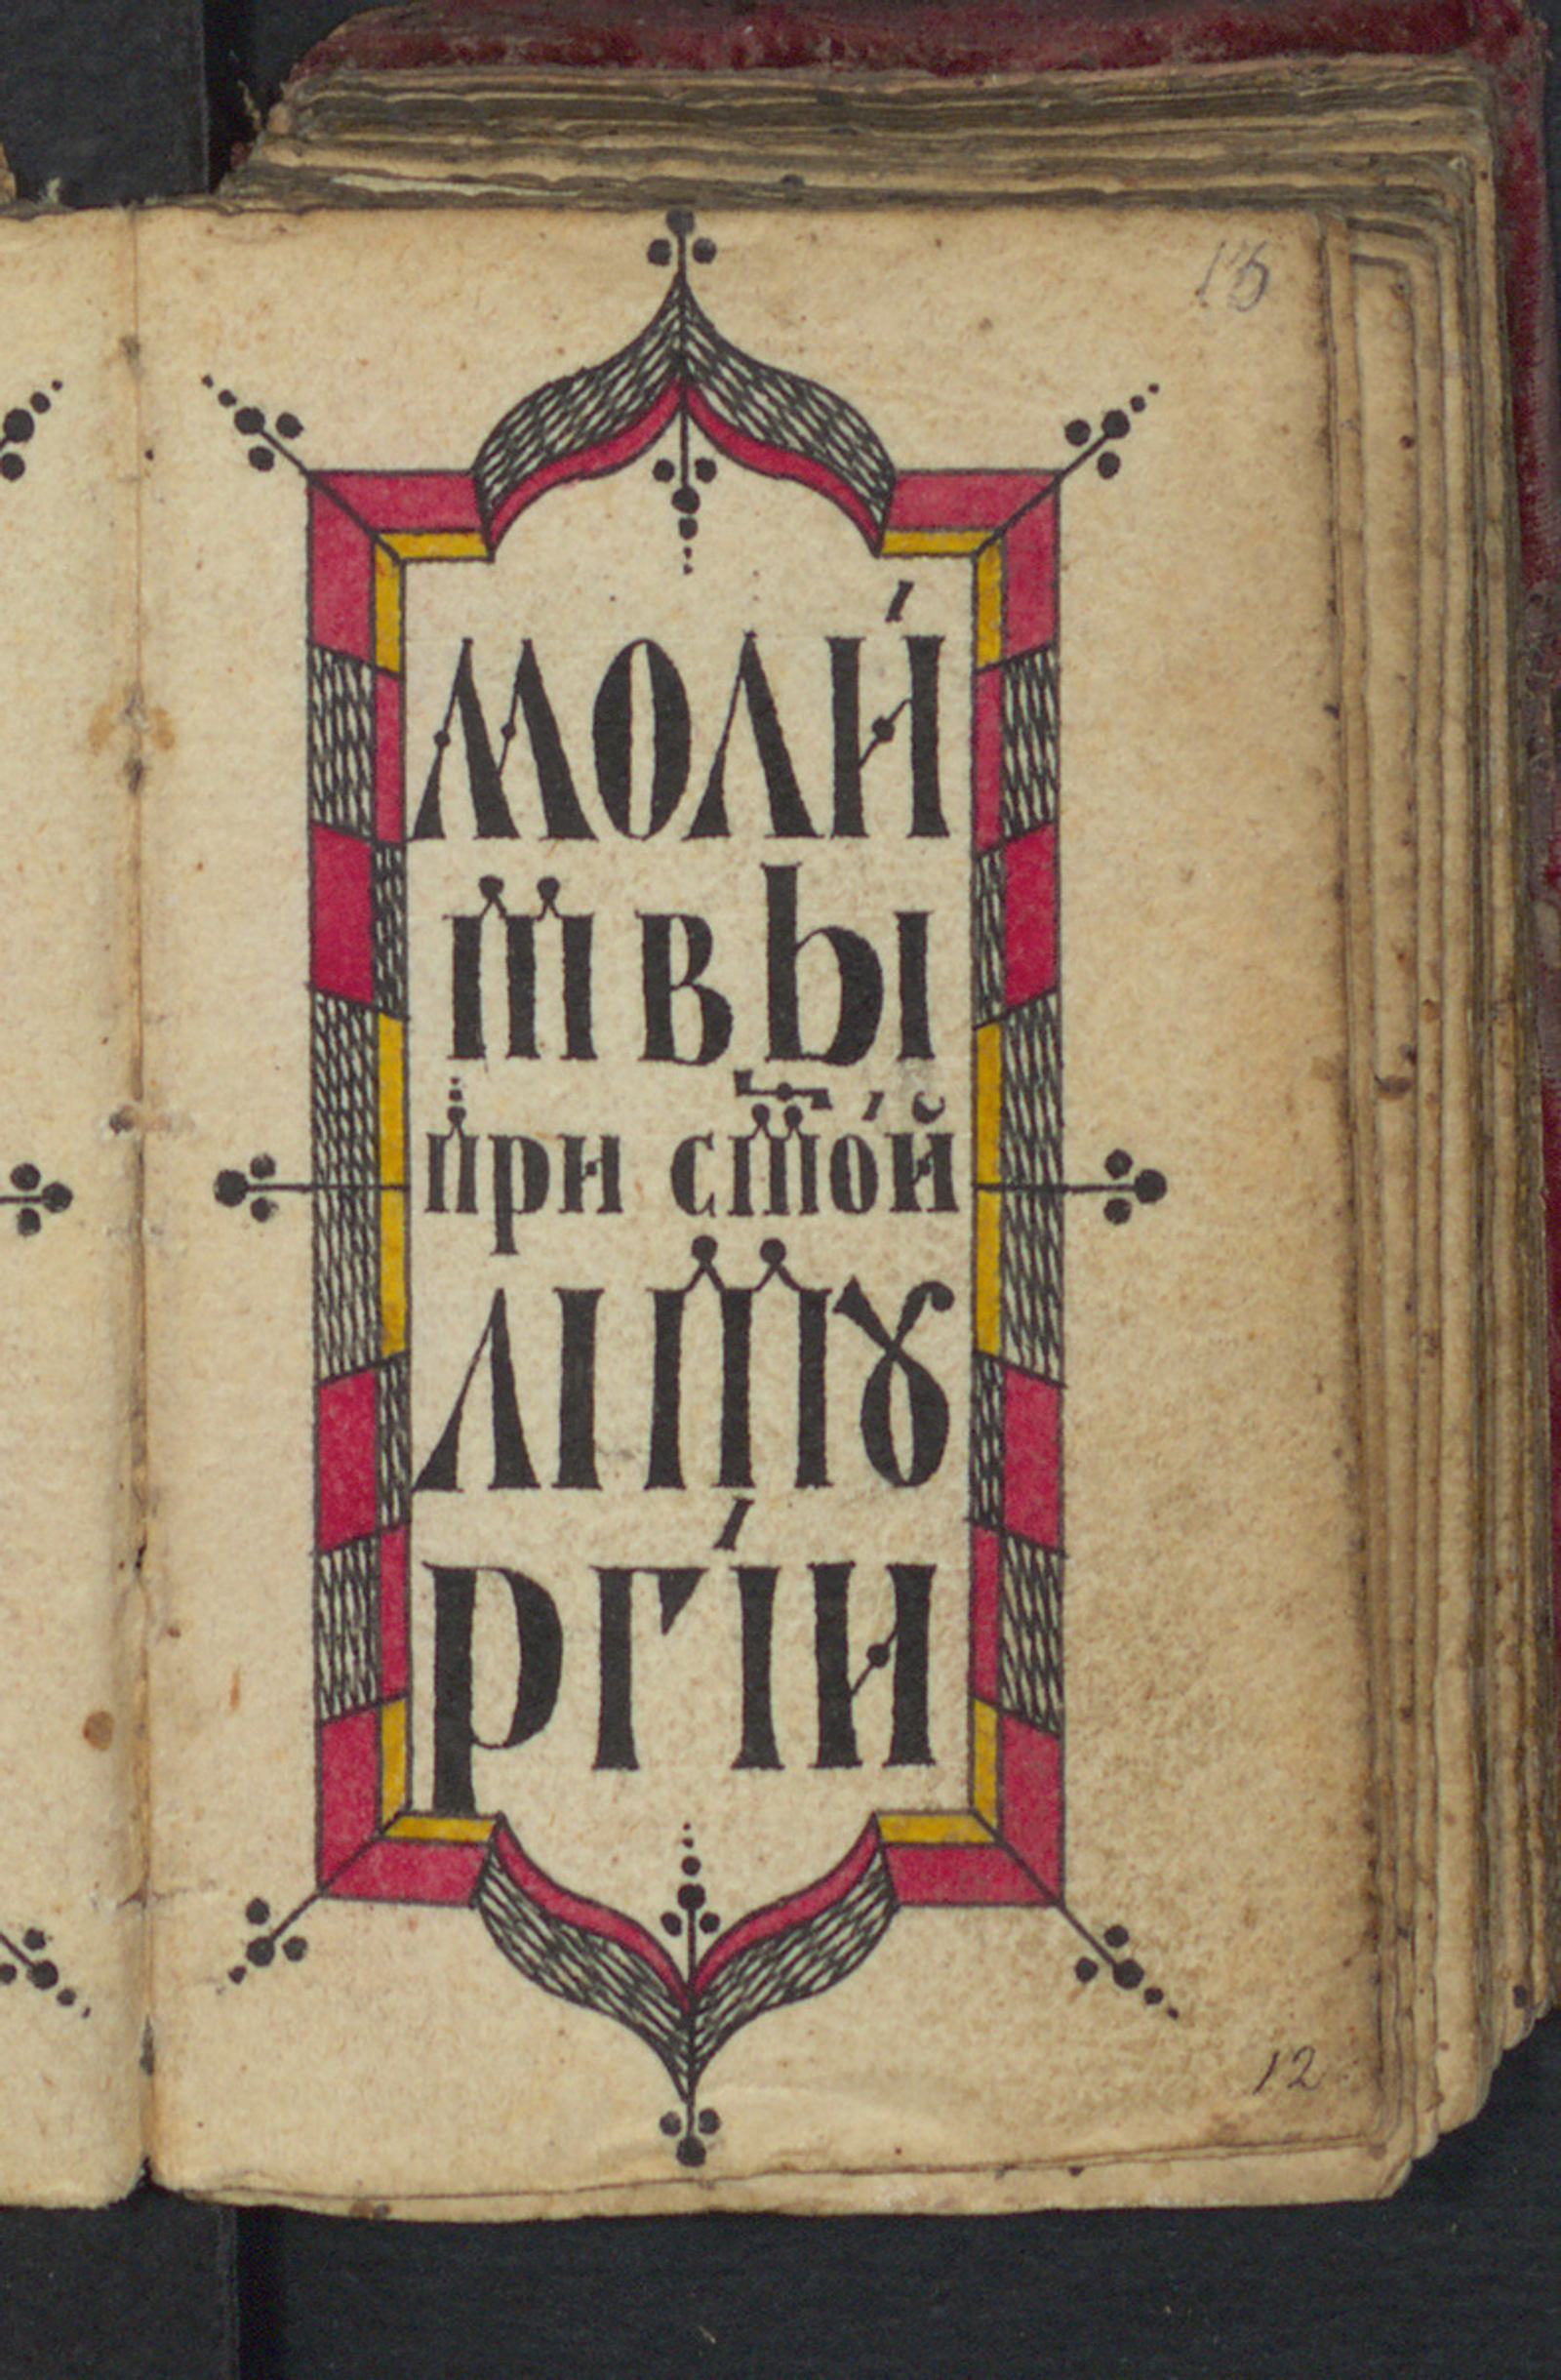 моли́
твы
при ст҃о́й
літꙋ
ргі́и
12